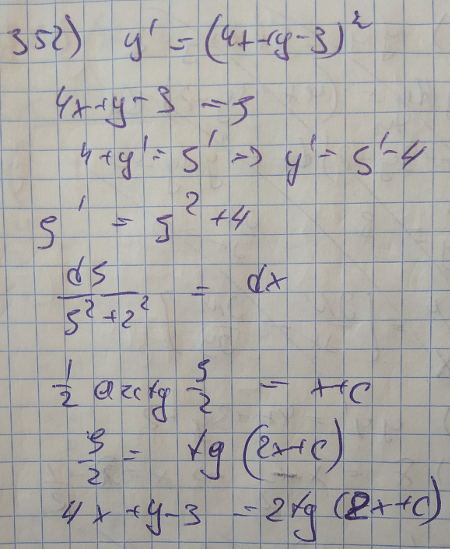 352) y' = (4x+y-3)²
4x+y-3 = s
4+y' = s' => y' = s'-4
s' = s²+4
ds/(s²+2²) = dx
1/2 arctg s/2 = x+c
s/2 = tg (2x+c)
4x+y-3 = 2tg (2x+c)